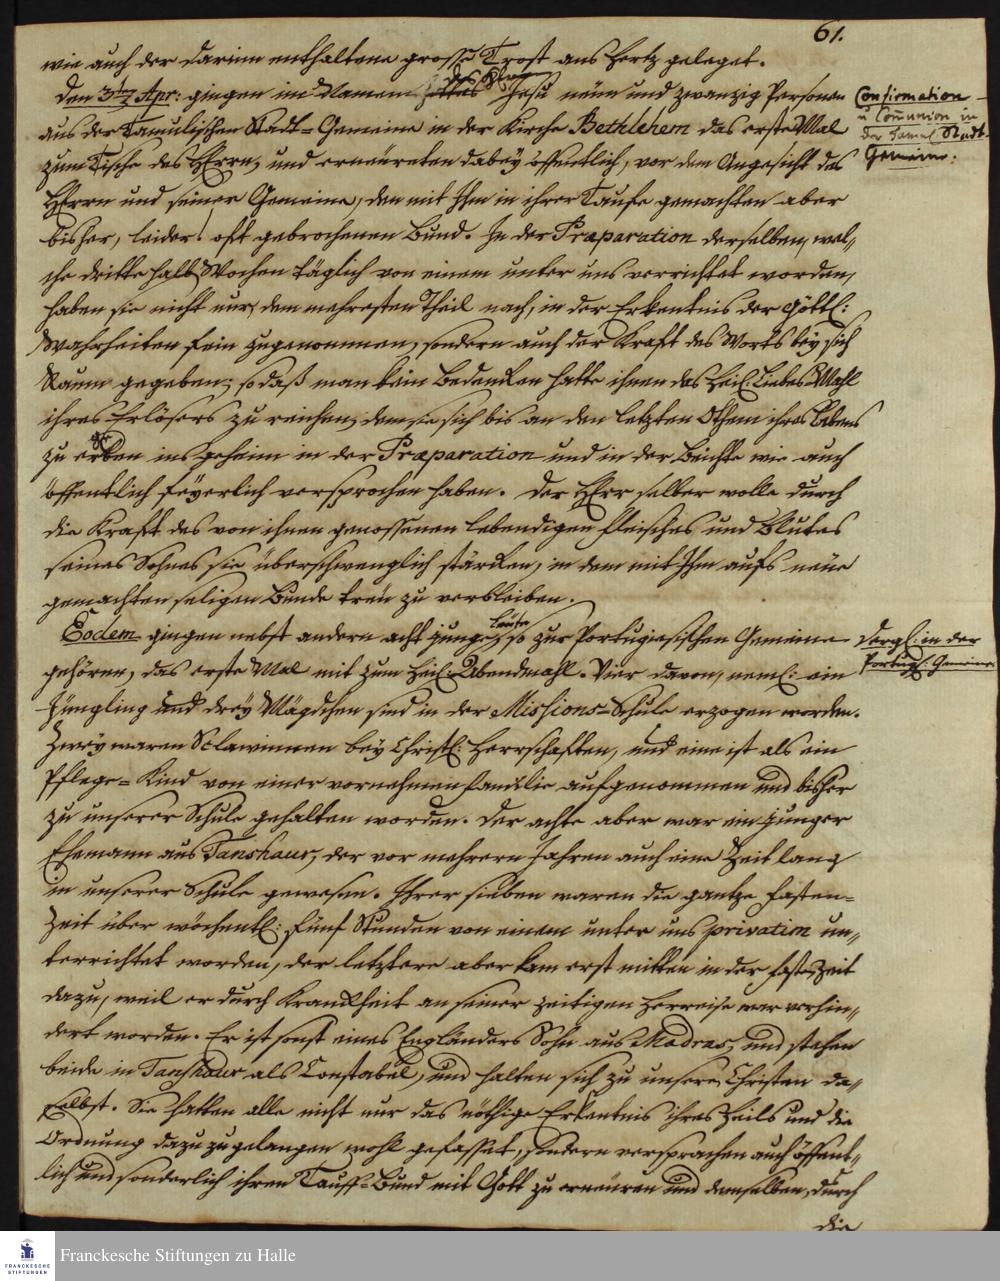 61.
wie auch der darinn enthaltene grosse Trost ans Hertz geleget.
Den 3ten Apr: gingen im Namen des HErrn Jesu neün und zwanzig Personen
aus der Tamulischen Stadt-Gemeine in der Kirche Bethlehem das erste Mal
zum Tische des HErrn, und erneüreten dabey öffentlich, vor dem Angesicht des
HErrn und seiner Gemeine, den mit Ihm in ihrer Taufe gemachten aber
bisher, leider! oft gebrochenen Bund. In der Præparation derselben, wel-
che dritte halb Wochen täglich von einem unter uns verrichtet worden,
haben sie nicht nur, dem mehresten Theil nach, in der Erkentnis der Göttl:
Wahrheiten fein zugenommen, sondern auch der Kraft des Worts bey sich
Raum gegeben; so daß man kein Bedencken hatte ihnen das heil. Liebes-Mahl
ihres Erlösers zu reichen, dem sie sich bis an den letzten Othem ihres Lebens
zu ergeben ins geheim in der Præparation und in der Beichte wie auch
öffentlich feyerlich versprochen haben. Der HErr selber wolle durch
die Kraft des von ihnen genossenen lebendigen Fleisches und Blutes
seines Sohnes sie überschwenglich stärcken, in dem mit Ihm aufs neüe
gemachten seligen Bunde treu zu verbleiben.
Eodem gingen nebst andern acht junge Leute, so zur Portugiesischen Gemeine
gehören, das erste Mal mit zum heil: Abendmahl. Vier davon, neml: ein
Jüngling und drey Mägdchen sind in der Missions-Schule erzogen worden.
Zwey waren Sclavinnen bey Christl: Herrschaften, und eine ist als ein
Pflege-Kind von einer vornehmen Familie aufgenommen und bisher
zu unserer Schule gehalten worden. Der achte aber war ein junger
Ehemann aus Tanshaur, der vor mehrern Jahren auch eine Zeit lang
in unserer Schule gewesen. Ihrer sieben waren die gantze Fasten-
Zeit über wöchentl: fünf Stunden von einem unter uns privatim un-
terrichtet worden, der letztere aber kam erst mitten in der Fastzeit
dazu, weil er durch Kranckheit an seiner zeitigen Herreise war verhin-
dert worden. Er ist sonst eines Engländers Sohn aus Madras, und stehen
beide in Tanshaur als Constabel, und halten sich zu unsern Christen da-
selbst. Sie hatten alle nicht nur das nöthige Erkentnis ihres Heils und die
Ordnung dazu zu gelangen wohl gefasset, sondern versprachen auch öffent-
lich und sonderlich ihren Tauff-Bund mit Gott zu erneüren und demselben, durch
die
Confirmation
u Com̄union in
der Tamul Stadt-
Gemeine:
Dergl: in der
Portug: Gemeine
FRANCKESCHE
STIFTUNGEN
Franckesche Stiftungen zu Halle